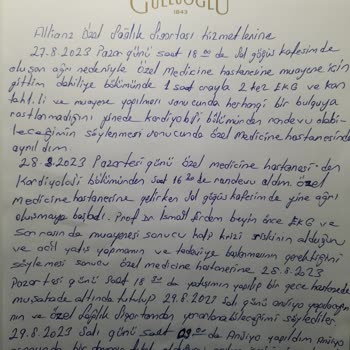 GÜLLÜOĞLU
1843
Allianz özel sağlık sigortası Hizmetlerine
27.8.2023 Pazar günü saat 18 00 de sol göğüs kafesimde
oluşan ağrı nedeniyle özel Medicine hastanesine muayene için
gittim dahiliye bölümünde 1 saat arayla 2 kez EKG ve kan
tahlili ve muayene yapılması sonucunda herhangi bir bulguya
rastlanmadığını yinede kardiyoloji bölümünden randevu alabi-
leceğimin söylenmesi sonucunda özel Medicine hastanesinde
ayrıldım
28.8.2023 Pazartesi günü özel medicine hastanesi-den
Kardiyoloji bölümünden saat 16 20 de randevu aldım özel
medicine hastanerine gelirken sol göğüs kafesimde yine ağrı
oluşmaya başladı. Prof Dr İsmail Erdem beyin önce EKG ve
sonrasında muayenesi sonucu kalp krizi riskinin olduğun
ve acil yatış yapmanın ve tedaviye başlanmasının gerektiğini
söylemesi sonucu özel medicine hastanerine 28.8.2023
Pazartesi günü saat 18 de yatışımın yapılıp bir gece hastanede
müşahade altında tutulup 29.8.2023 Salı günü anjiyo yapılacağı
nın ve özel sağlık sigortandan yararlanabileceğimi söylediler
29.8.2023 Salı günü saat 09 00 da Anjiyo yapıldım Anjiyo